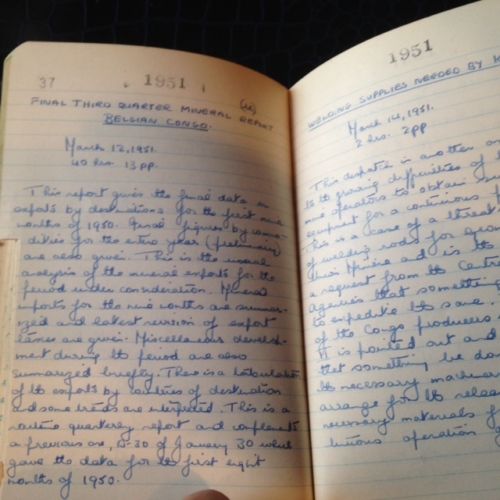 37 1951
(u)
FINAL THIRD QUARTER MINERAL REPORT
BELGIAN CONGO.
March 12, 1951.
40 hrs. 13 pp.
This report gives the final data on
exports by destinations for the first nine
months of 1950. Final figures by commo-
dities for the entire year (preliminary)
are also given. This is the usual
analysis of the mineral exports for the
period under consideration. Mineral
exports for the nine months are summar-
ized and latest revision of export
taxes are given. Miscellaneous develop-
ment during the period are also
summarized briefly. There is a tabulation
of the exports by countries of destination
and some trends are interpreted. This is a
routine quarterly report and complements
a previous one, D-30 of January 30 which
gave the data for the first eight
months of 1950.
1951
WELDING SUPPLIES NEEDED BY
March 14, 1951.
2 hrs. 2 pp
This despatch is another on
to the growing difficulties of
mine operators to obtain
equipment for a continuous
This is a case of a threat
of welding rods for
their mining and is the
a request from the
Agencies that something
to expedite the same.
of the Congo producers
It is pointed out and
that something be done
the necessary machinery
arrange for the release
necessary materials for
operation of